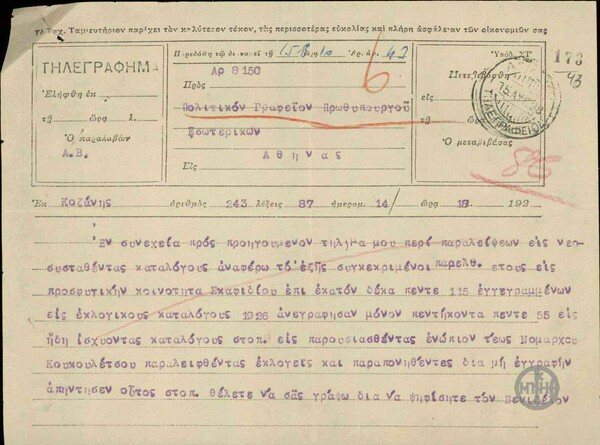 Τὸ Ταχ. Ταμιευτήριον παρέχει τὸν καλύτερον τόκον, τὰς περισσοτέρας εὐκολίας καὶ πλήρη ἀσφάλειαν τῶν οἰκονομιῶν σας
ΤΗΛΕΓΡΑΦΗΜΑ
Ἐλήφθη ἐκ
τῇ ὥρᾳ λ.
Ὁ παραλαβὼν
Α.Β.
Παρεδόθη τῷ διανομεῖ τῇ Ἀρ. ἀρ. 43
Αρ 8150
6
Πρὸς
Πολιτικόν Γραφεῖον Πρωθυπουργοῦ
Εσωτερικων
Ἀθηνας
Εἰς
Ὑπόδ. ΧΓ
173
43
Μετεβιβάσθη
εἰς
τῇ ὥρᾳ
Ὁ μεταβιβάσας
ΤΗΛΕΓΡΑΦΕΙΟΝ
Ἐκ Κοζάνης ἀριθμὸς 243 λέξεις 87 ἡμερομ. 14/ ὥρα 18. 192
Ἐν συνεχεία πρός προηγουμενον τηλημα μου περί παραλείψεων εις νεο-
συσταθέντας καταλόγους αναφέρω τό εξής συγκεκριμένοι παρελθ. ετους εις
προσφυγικήν κοινοτητα Σκαφιδίου επι εκατόν δέκα πεντε 115 εγγεγραμμένων
εις εκλογικους καταλόγους 1926 ανεγραφησαν μόνον πεντήκοντα πεντε 55 εις
ήδη ίσχυοντας καταλόγους στοπ. εις παρουσιασθέντας ενώπιον τέως Νομαρχου
Κουκουλέτσου παραλειφθέντας εκλογείς και παραπονηθέντας δια μή εγγραφήν
απήντησεν ούτος στοπ. θέλετε να σᾶς γράψω δια να ψηφίσητε τόν Βενιζέλον